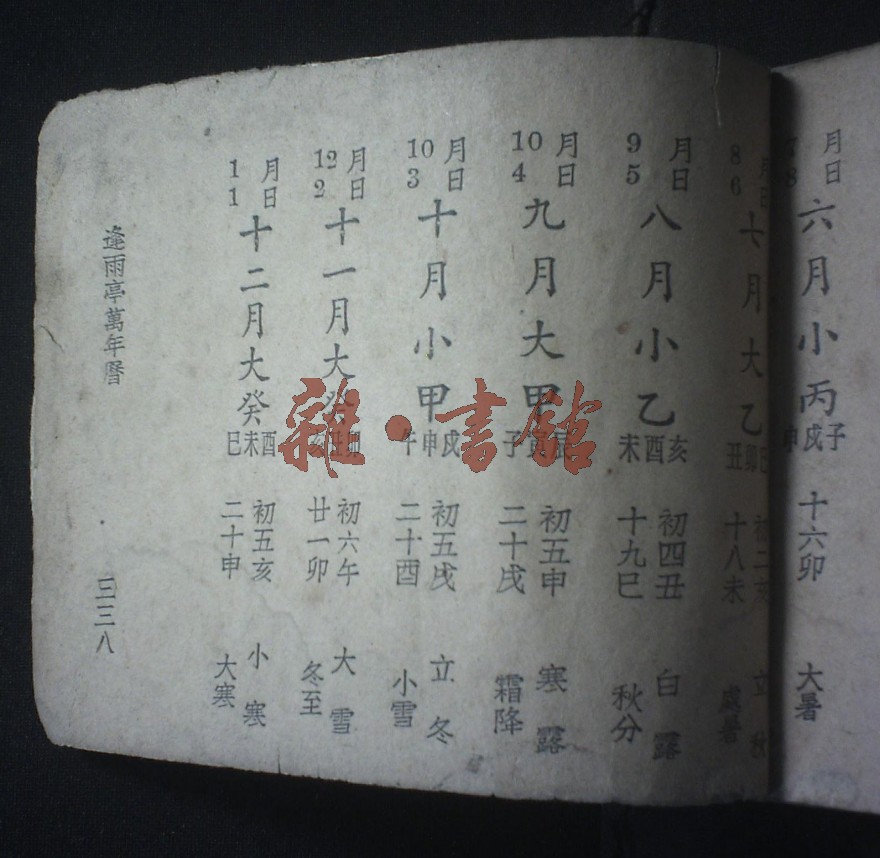 7月
8日
六月小丙
子戌申
十六卯 大暑
8月
6日
七月大乙
巳卯丑
初二亥 立秋
十八未 處暑
9月
5日
八月小乙
亥酉未
初四丑 白露
十九巳 秋分
10月
4日
九月大甲
辰寅子
初五申 寒露
二十戌 霜降
10月
3日
十月小甲
戌申午
初五戌 立冬
二十酉 小雪
12月
2日
十一月大癸
卯丑亥
初六午 大雪
廿一卯 冬至
1月
1日
十二月大癸
酉未巳
初五亥 小寒
二十申 大寒
逢雨亭萬年曆 三三八
雜·書館